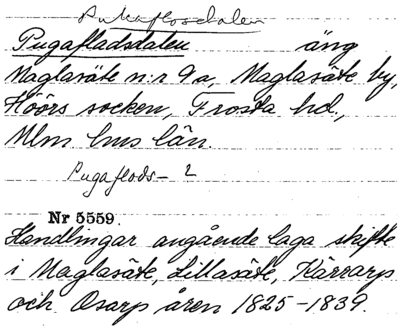 Pukaflosdalen
Pugafladsdalen äng
Maglasäte n:r 9a, Maglasäte by,
Höörs socken, Frosta hd.,
Mlm hus län.
Pugaflods- 2
Nr 5559.
Handlingar angående laga skifte
i Maglasäte, Lillasäte, Kärrarp
och Osarp åren 1825-1839.